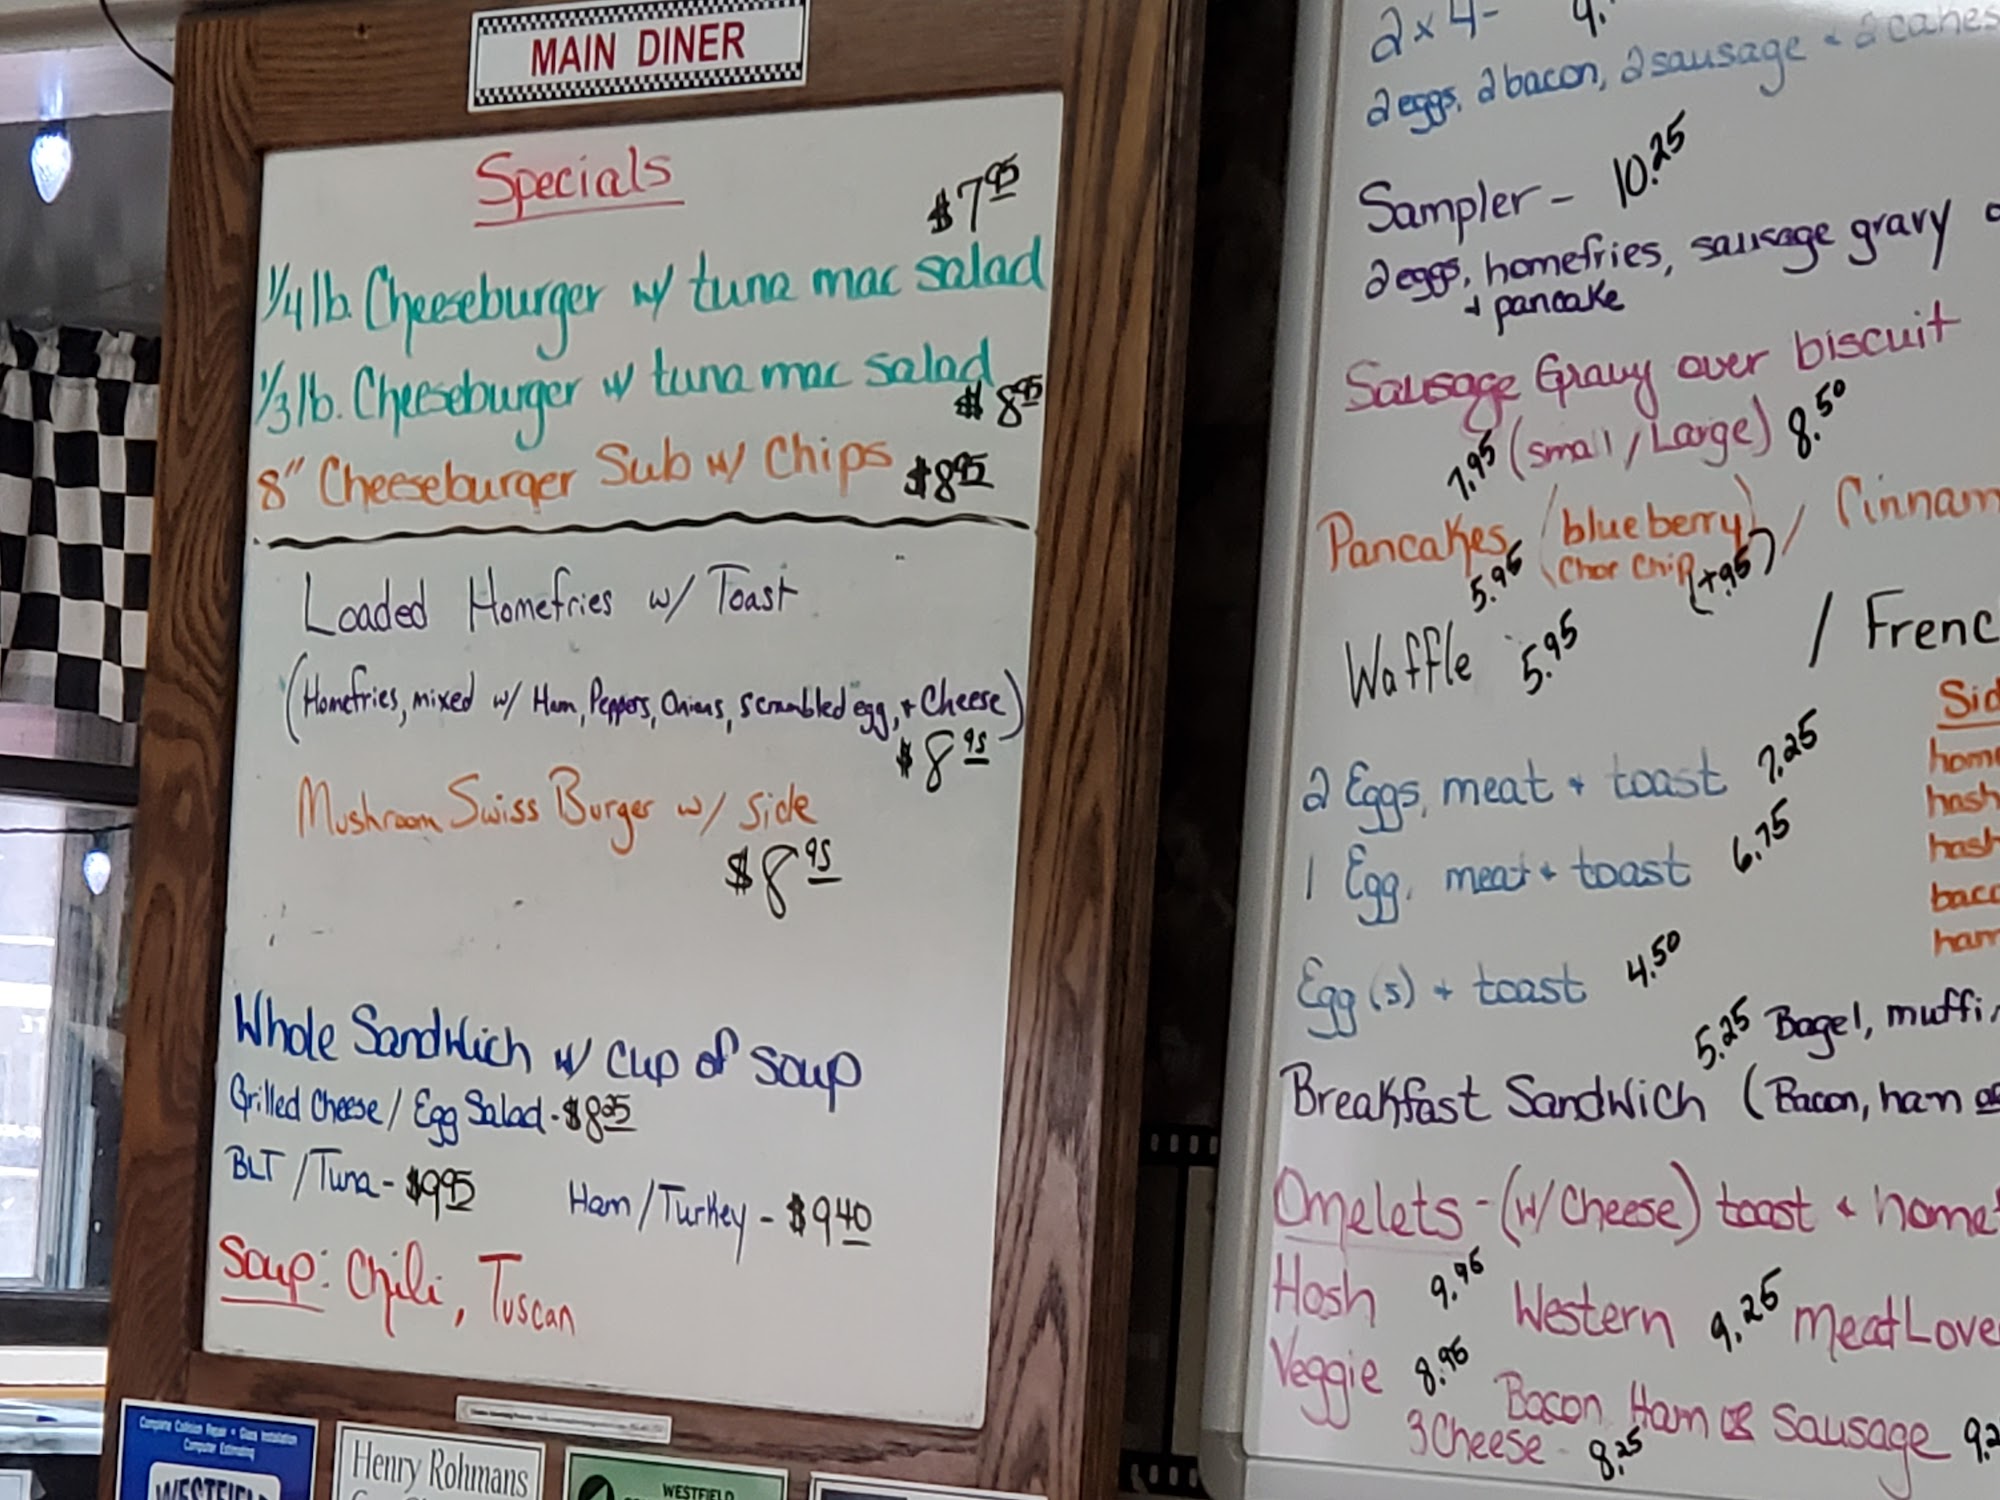 MAIN DINER
Specials
$7.95
1/4 lb. Cheeseburger w/ tuna mac salad
1/3 lb. Cheeseburger w/ tuna mac salad
$8.95
8" Cheeseburger Sub w/ Chips $8.95
Loaded Homefries w/ Toast
(Homefries, mixed w/ Ham, Peppers, Onions, scrambled egg, + Cheese)
$8.95
Mushroom Swiss Burger w/ side
$8.95
Whole Sandwich w/ cup of soup
Grilled Cheese / Egg Salad - $8.25
BLT / Tuna - $9.95 Ham / Turkey - $9.40
Soup: Chili, Tuscan
Complete Collision Repair • Glass Installation
Computer Estimating
WESTFIELD
Henry Rohmans
WESTFIELD
2 x 4 -
2 eggs, 2 bacon, 2 sausage + 2 cakes
Sampler - 10.25
2 eggs, homefries, sausage gravy
+ pancake
Sausage Gravy over biscuit
7.95 (small / Large) 8.50
Pancakes (blueberry) / Cinnam
5.95 Choc Chip (+.95)
Waffle 5.95 / Frenc
Sid
home
hash
hash
baco
ham
2 Eggs, meat + toast 7.25
1 Egg, meat + toast 6.75
Egg(s) + toast 4.50
5.25 Bagel, muffin
Breakfast Sandwich (Bacon, ham or
Omelets - (w/ Cheese) toast + homef
Hash 9.95 Western 9.25 Meat Love
Veggie 8.95 Bacon Ham or Sausage 9.2
3 Cheese - 8.25